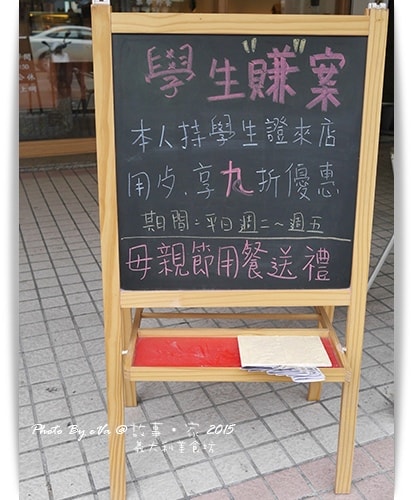 學生"賺"案
本人持學生證來店
用歺.享九折優惠
期間：平日週二~週五
母親節用餐送禮
Photo By eVa @ 故事·家 2015
義大利美食坊